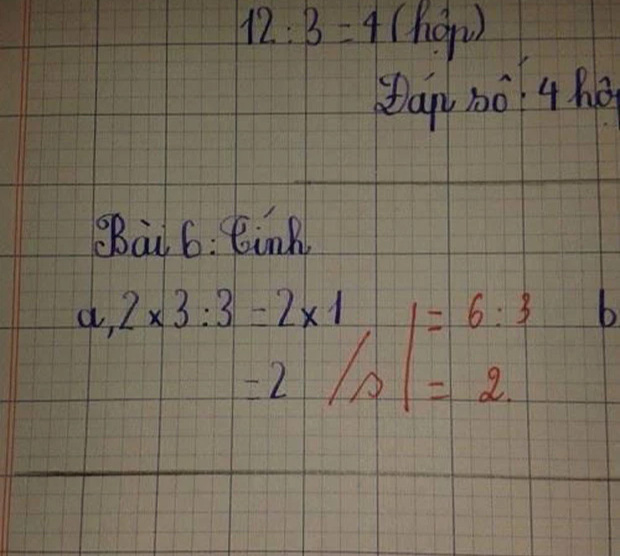 12 : 3 = 4 (hộp)
Đáp số : 4 hộp
Bài 6 : Tính
a, 2 x 3 : 3 = 2 x 1 = 6 : 3 b
= 2 /s = 2.